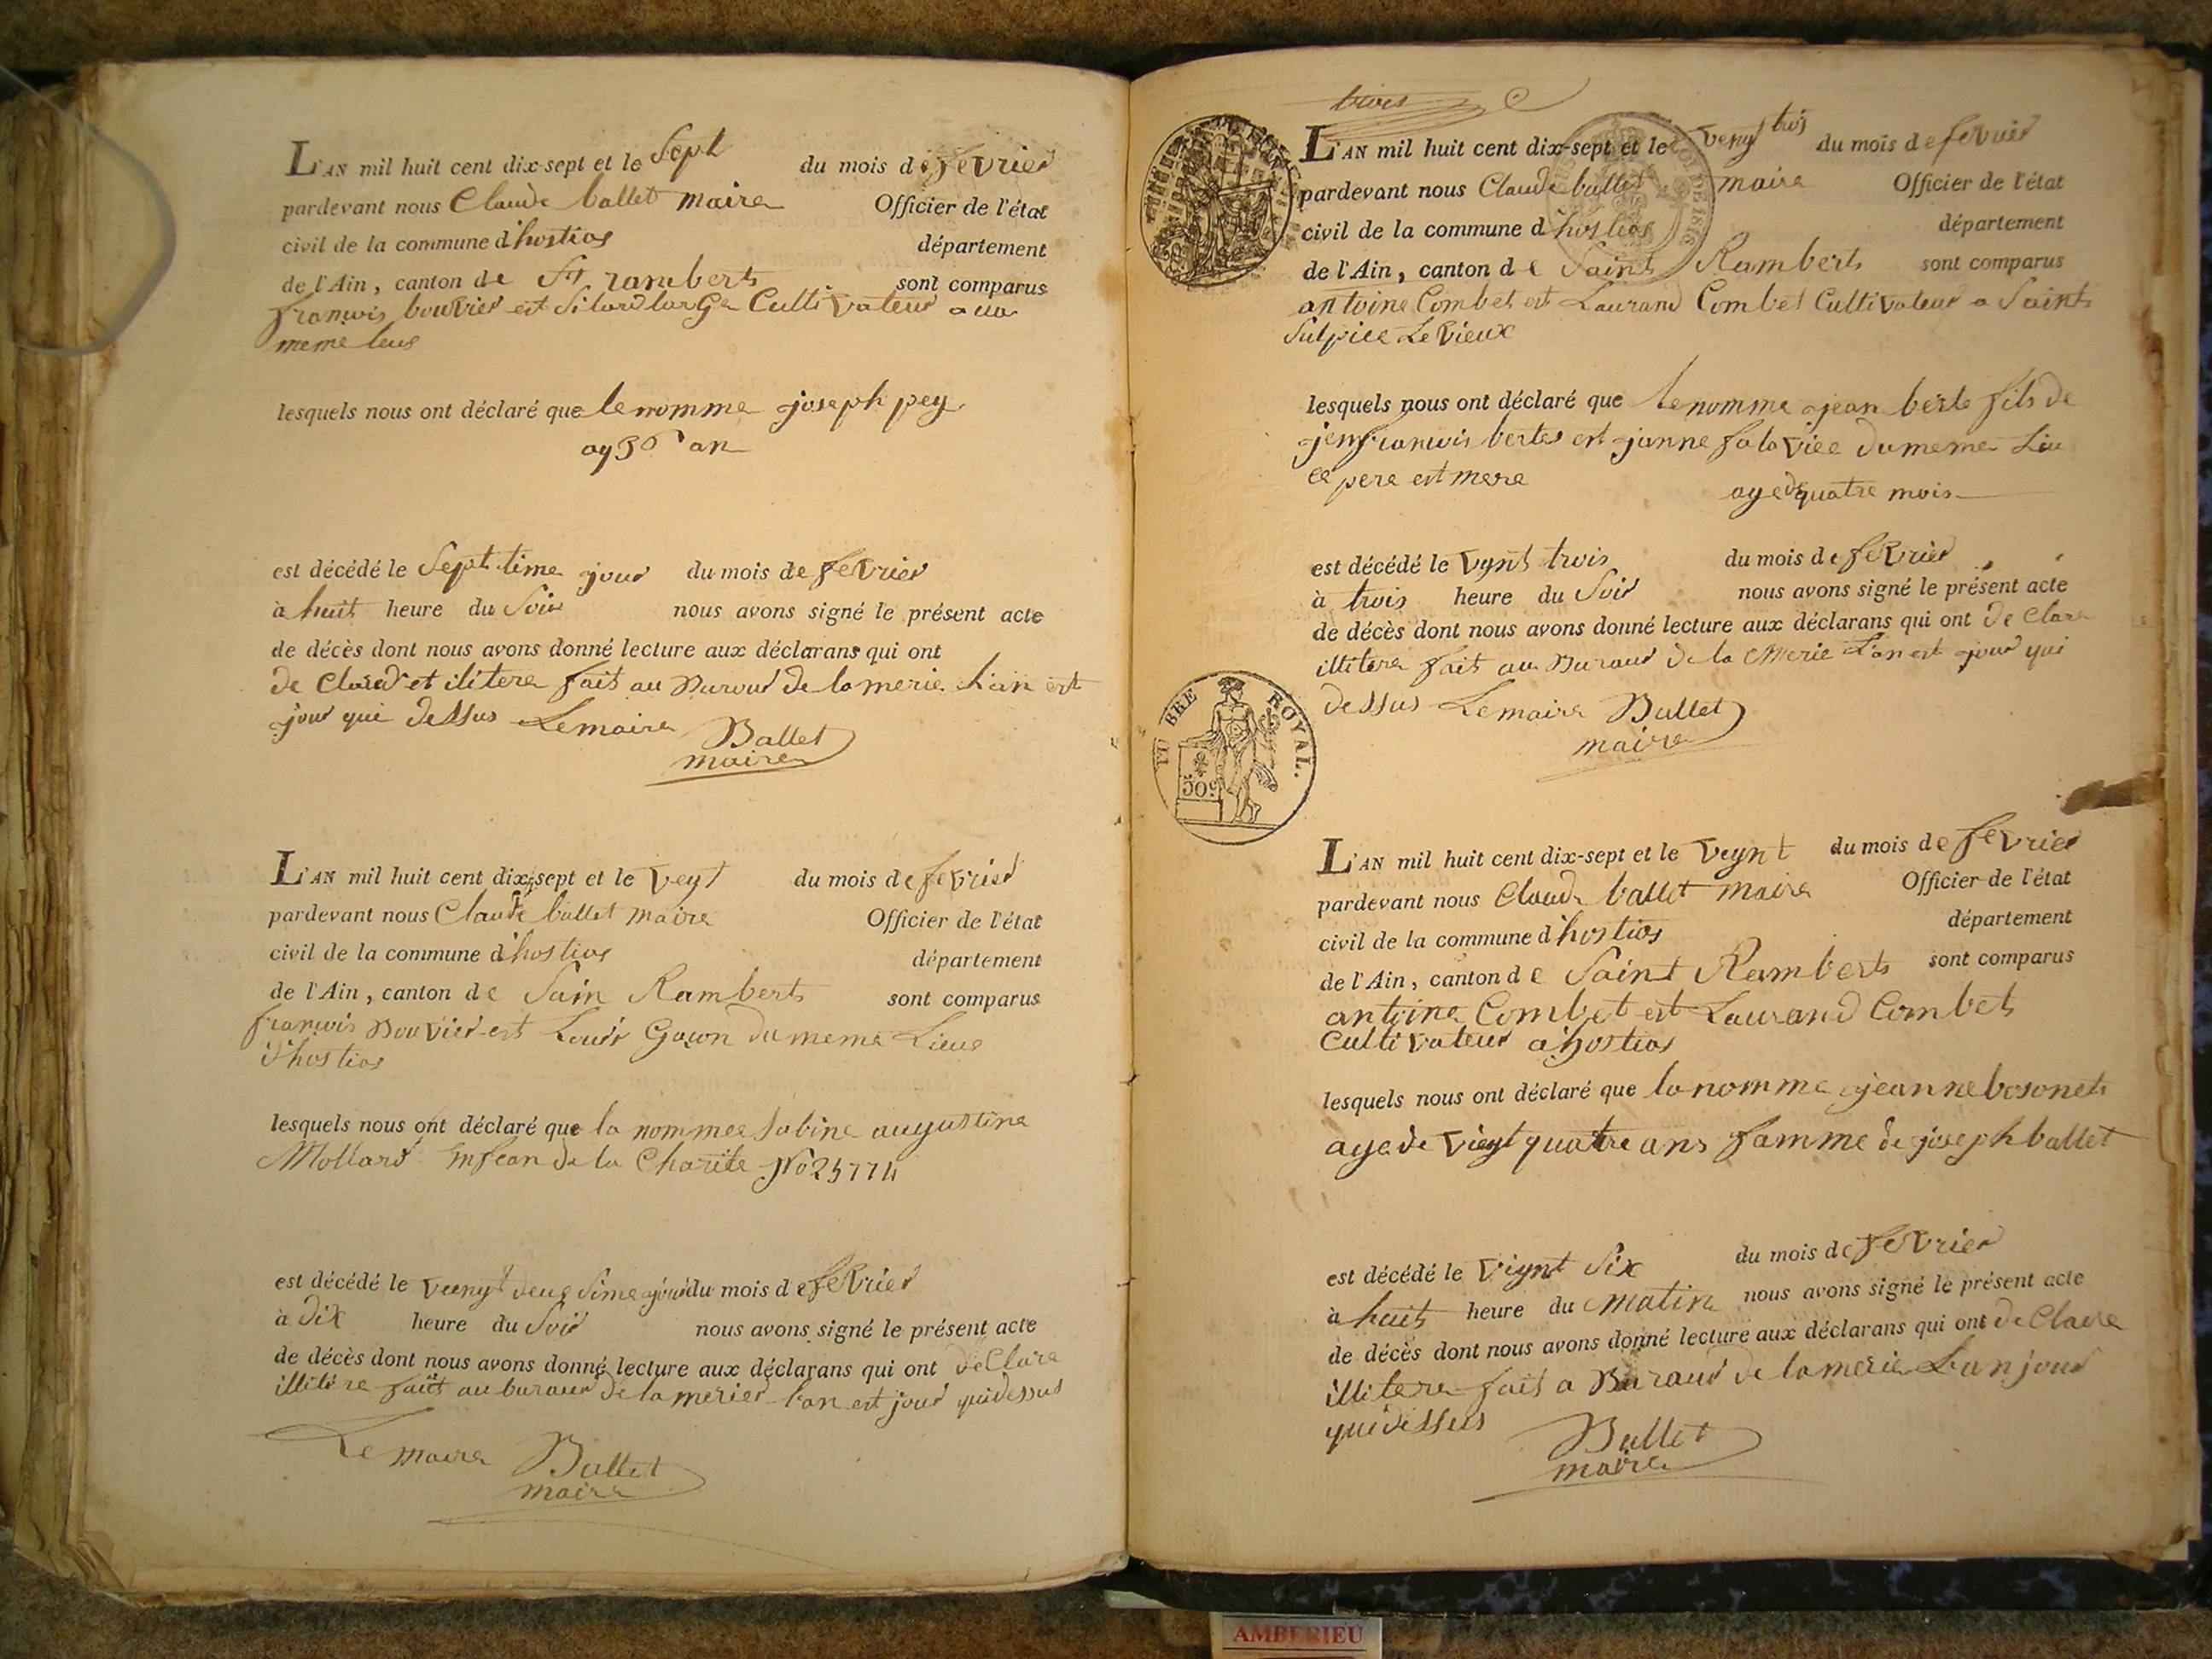 L'AN mil huit cent dix-sept et le Sept du mois de fevrier
pardevant nous Claude ballet maire Officier de l'état
civil de la commune d'hostias département
de l'Ain, canton de St ramberts sont comparus
françois bouvier est Cultivateur
meme leus
lesquels nous ont déclaré que le nomme joseph pey
an
est décédé le Sept time jour du mois de fevrier
à huit heure du Soir nous avons signé le présent acte
de décès dont nous avons donné lecture aux déclarans qui ont
de Claré et ilitere fait au Buraud de la merie L'an est
jour qui dessus Lemaire Ballet
maire
L'AN mil huit cent dix-sept et le veyt du mois de fevrier
pardevant nous Claude ballet maire Officier de l'état
civil de la commune d'hostias département
de l'Ain, canton de Sain Ramberts sont comparus
françois Bouvier est Louis Gaçon du meme Lieus
d'hostias
lesquels nous ont déclaré que la nommee Sabine augustine
Mollard enfean de la Charite No 25774
est décédé le du mois de fevrier
à dix heure du Soir nous avons signé le présent acte
de décès dont nous avons donné lecture aux déclarans qui ont de Clare
illitere fait au buraud de la merier l'an est jour qui dessus
Le maire Ballet
maire
trois
L'AN mil huit cent dix-sept et le veny trois du mois de fevrier
pardevant nous Claude ballet maire Officier de l'état
civil de la commune d'hostias département
de l'Ain, canton de Saint Ramberts sont comparus
antoine Combet est Laurand Combet Cultivateur a Saint
Sulpice Le Vieux
lesquels nous ont déclaré que le nomme jean berte fils de
jenfrancois bertes est janne du meme Liu
ce pere est mere aye de quatre mois
est décédé le vynt trois du mois de fevrier
à trois heure du Soir nous avons signé le présent acte
de décès dont nous avons donné lecture aux déclarans qui ont de Clare
illitere fait au Buraud de la Merie L'an est jour qui
dessus Lemaire Ballet
maire
TIMBRE ROYAL.
50c
L'AN mil huit cent dix-sept et le veynt du mois de fevrier
pardevant nous Claude ballet maire Officier de l'état
civil de la commune d'hostias département
de l'Ain, canton de Saint Ramberts sont comparus
antoine Combet est Laurand Combet
Cultivateur a hostias
lesquels nous ont déclaré que la nomme jeanne bosonet
aye de vieyt quatre ans famme de joseph ballet
est décédé le vieynt Six du mois de fevrier
à huit heure du matin nous avons signé le présent acte
de décès dont nous avons donné lecture aux déclarans qui ont de Clare
illitere fait a Buraud de la merie L'an jour
qui dessus Ballet
maire
AMBERIEU